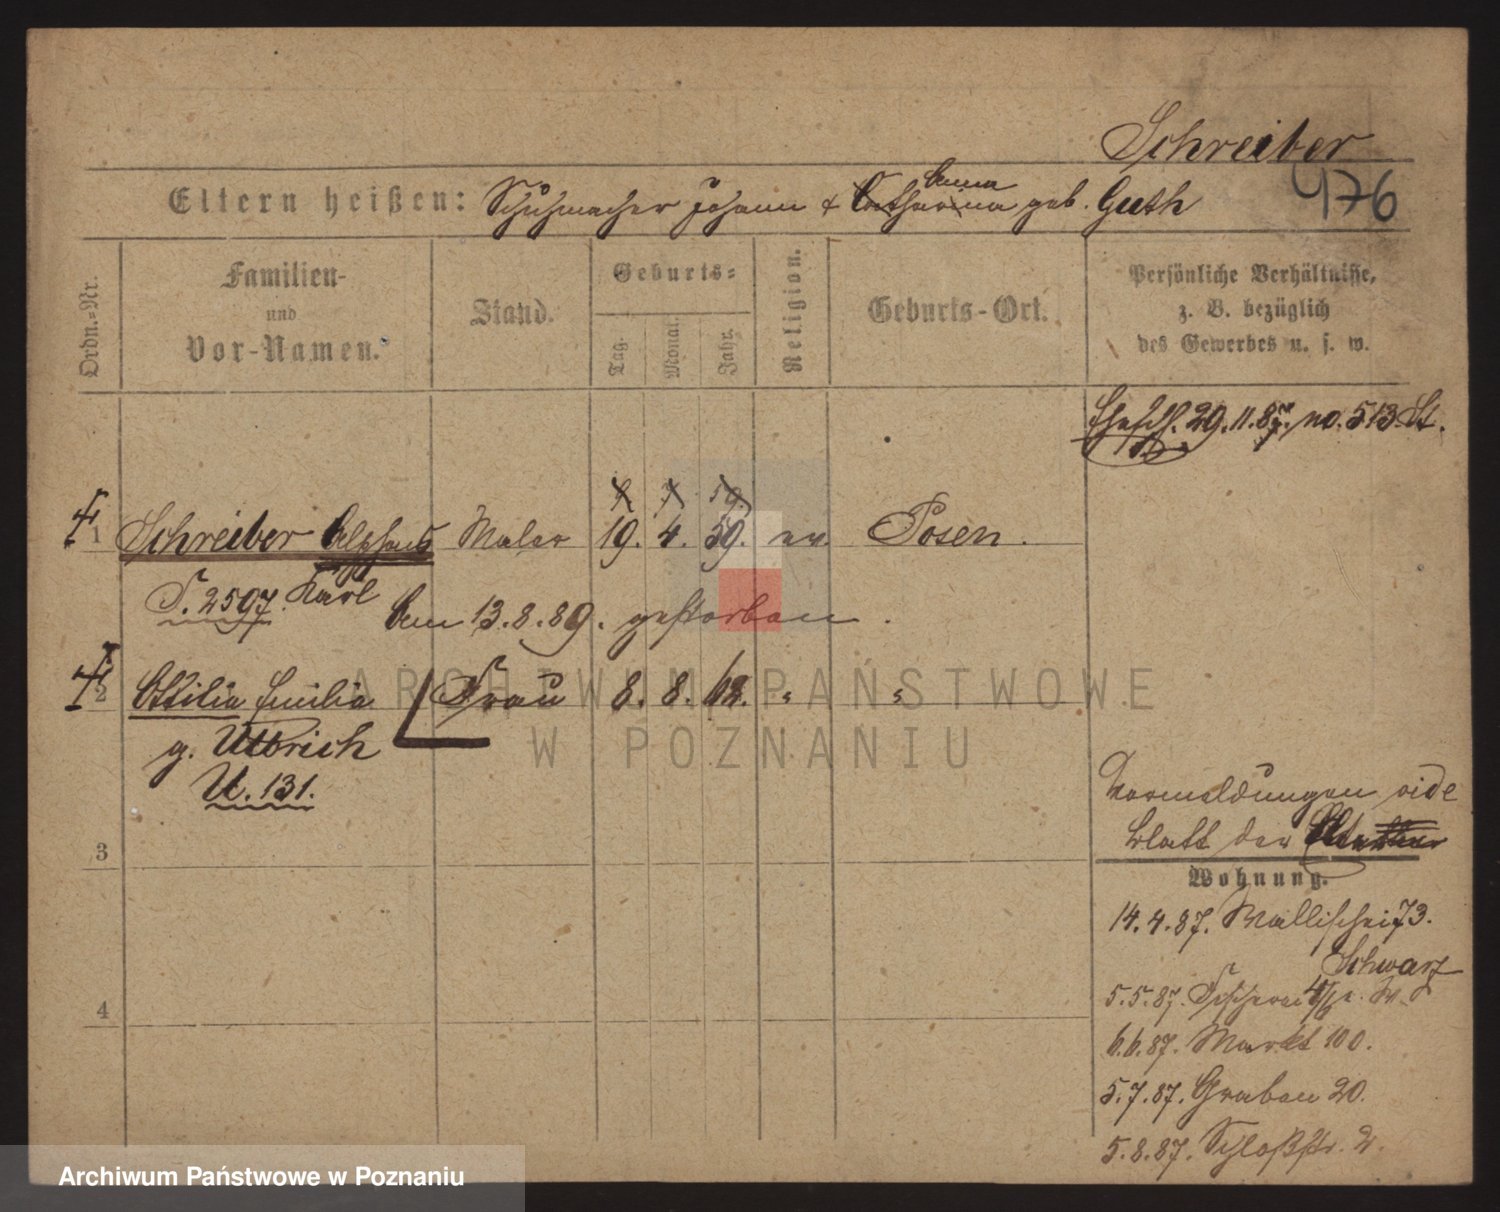 Schreiber
476
Eltern heißen: Schuhmacher Johann & Catharina Anna geb. Guth
Ordn.-Nr.
Familien-
und
Vor-Namen.
Stand.
Geburts-
Tag.
Monat.
Jahr.
Religion.
Geburts-Ort.
Persönliche Verhältnisse,
z. B. bezüglich
des Gewerbes u. s. w.
Eheschl. 29.11.87. no. 513 St.
1 Schreiber Alphons Maler 19. 4. 59. ev. Posen.
Karl
S. 2507.
Am 13.8.89. gestorben.
2 Ottilie Emilie Frau 8. 8. 62. " "
g. Ulbrich
U. 131.
3
4
Vormeldungen vide
Blatt der Eltern
Wohnung.
14.4.87. Wallischei 73.
Schwarz
5.5.87. Fischerei
6.6.87. Markt 100.
5.7.87. Graben 20.
5.8.87. Schloßstr. 2.
ARCHIWUM PAŃSTWOWE
W POZNANIU
Archiwum Państwowe w Poznaniu